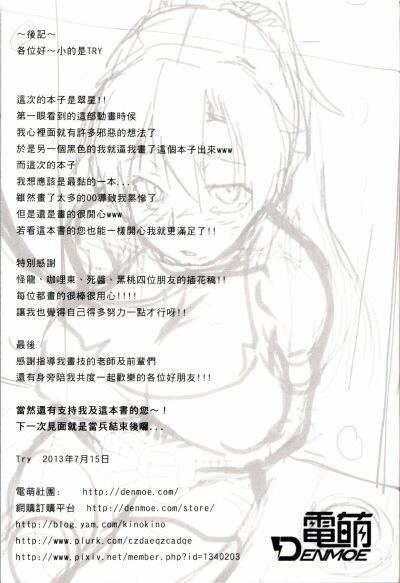 ~後記~
各位好~小的是TRY
這次的本子是翠星!!
第一眼看到的這部動畫時侯
我心裡面就有許多邪惡的想法了
於是另一個黑色的我就逼我畫了這個本子出來www
而這次的本子
我想應該是最黏的一本...
雖然畫了太多的OO導致我累慘了
但是還是畫的很開心www
若看這本書的您也能一樣開心我就更滿足了!!
特別感謝
怪龍、咖哩東、死醬、黑桃四位朋友的插花稿!!
每位都畫的很棒很用心!!!!
讓我也覺得自己得多努力一點才行呀!!
最後
感謝指導我畫技的老師及前輩們
還有身旁陪我共度一起歡樂的各位好朋友!!!
當然還有支持我及這本書的您~!
下一次見面就是當兵結束後囉...
Try 2013年7月15日
電萌社團: http://denmoe.com/
網購訂購平台 http://denmoe.com/store/
http://blog.yam.com/kinokino
http://www.plurk.com/czdaeqzcadqe
http://www.pixiv.net/member.php?id=1340203
電萌
DENMOE